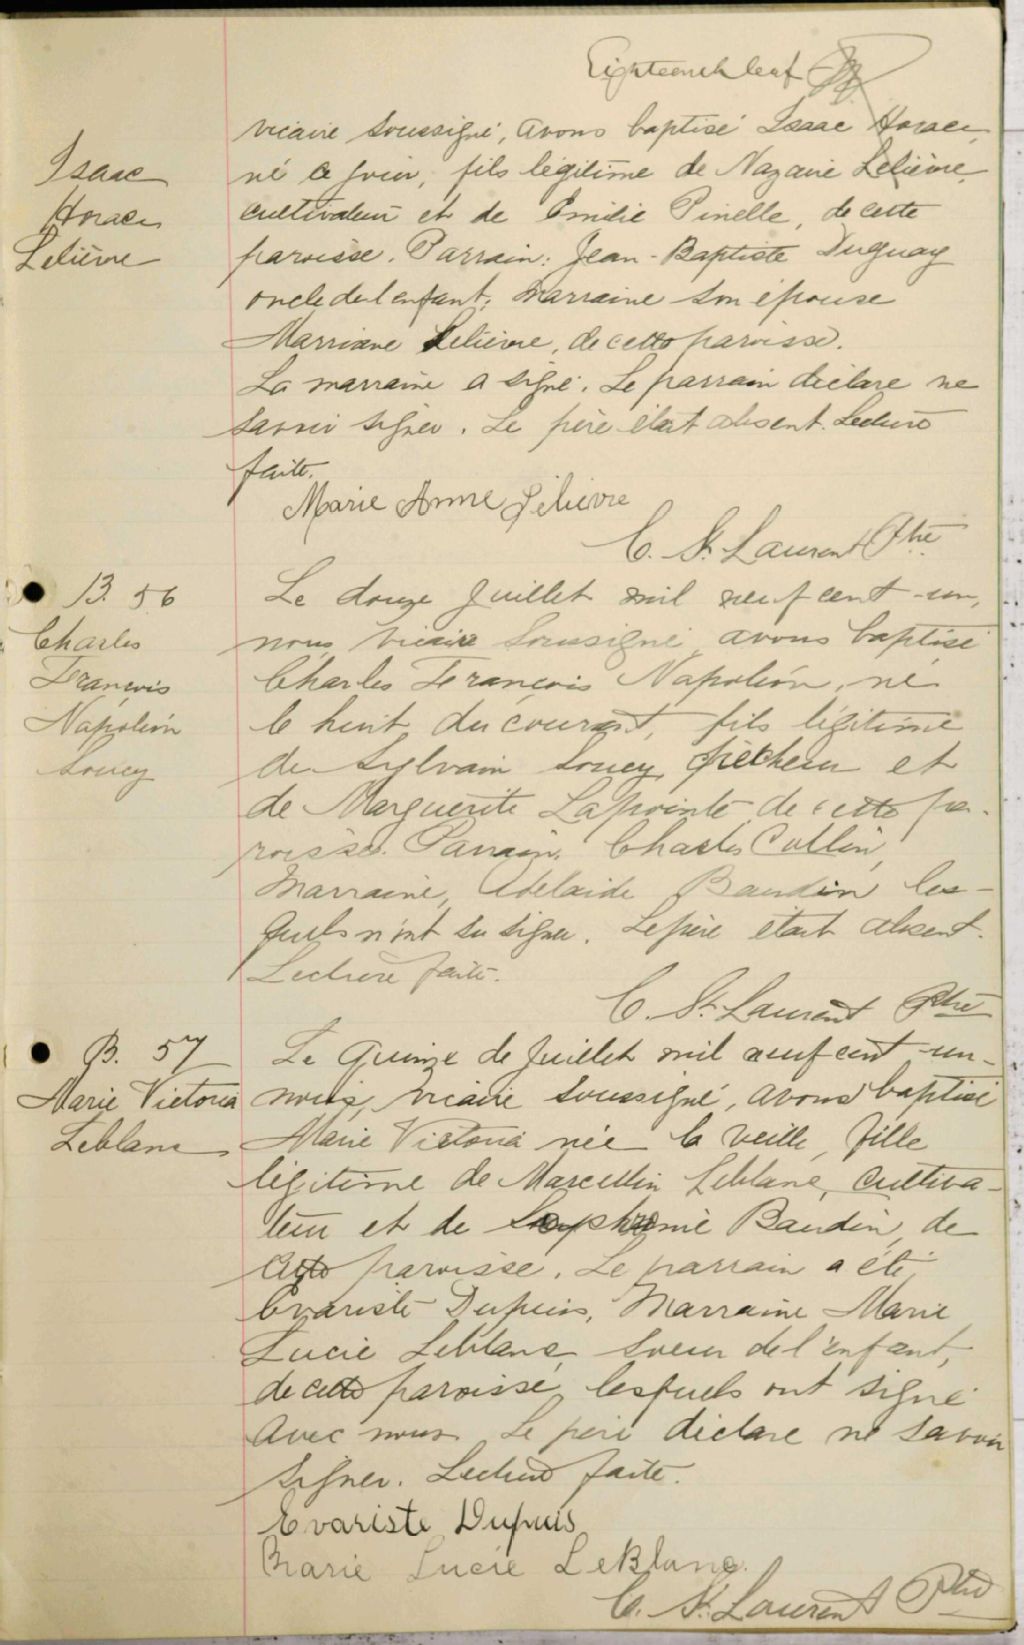 Eighteenth leaf
vicaire soussigné, avons baptisé Isaac Horace,
Isaac
né ce jour, fils légitime de Nazaire Lelièvre,
Horace
cultivateur et de Emilie Pinelle, de cette
Lelièvre
paroisse. Parrain: Jean-Baptiste Duguay
oncle de l'enfant, marraine son épouse
Marriane Lelièvre, de cette paroisse.
La marraine a signé. Le parrain déclare ne
savoir signer. Le père était absent. Lecture
faite.
Marie Anne Lelievre
C. St. Laurent Ptre
B. 56
Le douze Juillet mil neuf cent-un,
Charles
nous, vicaire soussigné, avons baptisé
François
Charles François Napoléon, né
Napoléon
le huit du courant, fils légitime
Soucy
de Sylvain Soucy, pêcheur et
de Marguerite Lapointe de cette pa-
roisse. Parrain, Charles Cullin,
Marraine, Adelaide Baudin les-
quels n'ont su signer. Le père était absent.
Lecture faite.
C. St. Laurent Ptre
B. 57
Le Quinze de Juillet mil neuf cent-un-
Marie Victoria
nous, vicaire soussigné, avons baptisé
Leblanc
Marie Victoria née la veille, fille
légitime de Marcellin Leblanc, cultiva-
teur et de Baudin, de
cette paroisse. Le parrain a été,
Evariste Dupuis, Marraine Marie
Lucie Leblanc, soeur de l'enfant,
de cette paroisse, lesquels ont signé
avec nous. Le père déclare ne savoir
signer. Lecture faite.
Evariste Dupuis
Marie Lucie LeBlanc.
C. St. Laurent Ptre